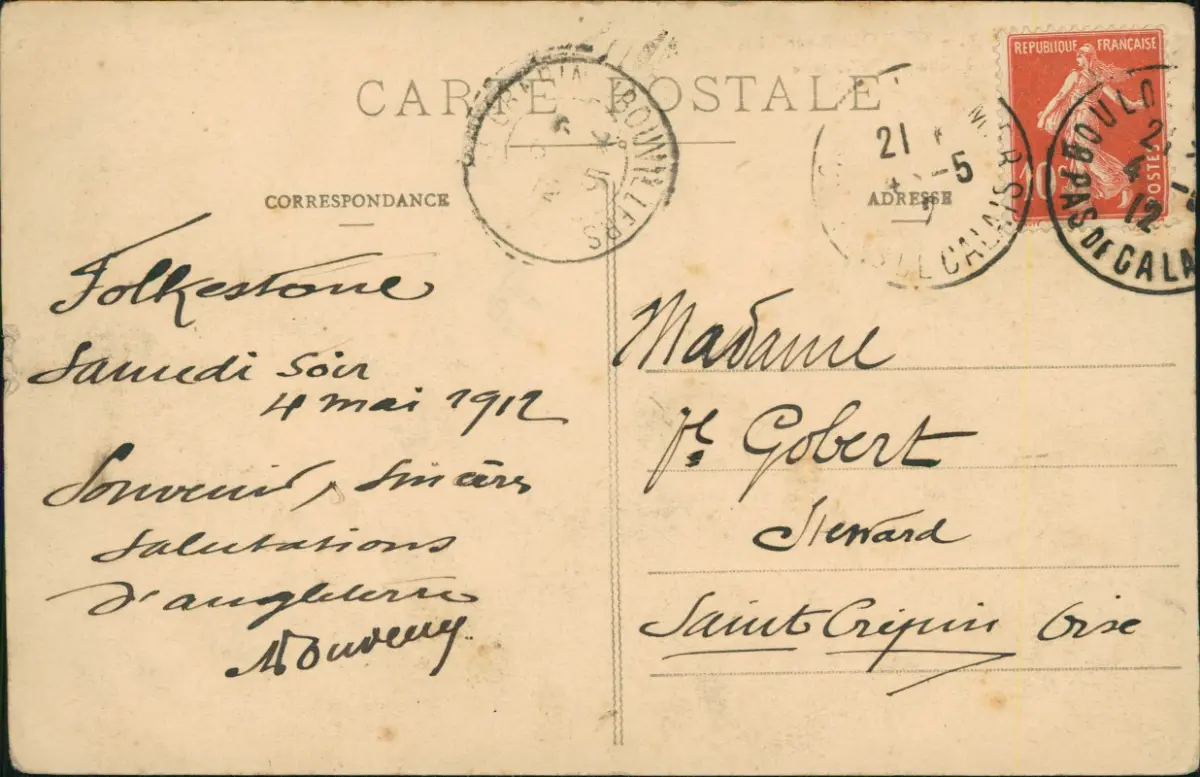 CARTE POSTALE
CORRESPONDANCE
ADRESSE
REPUBLIQUE FRANÇAISE
10c
POSTES
21
4-5
BOULO
21
4-5
12
PAS DE CALA
BOUVILLERS
Folkestone
Samedi soir
4 mai 1912
Souvenir, sincères
salutations
d'angleterre
Madame
Vve Gobert
Steward
Saint Crépin Oise